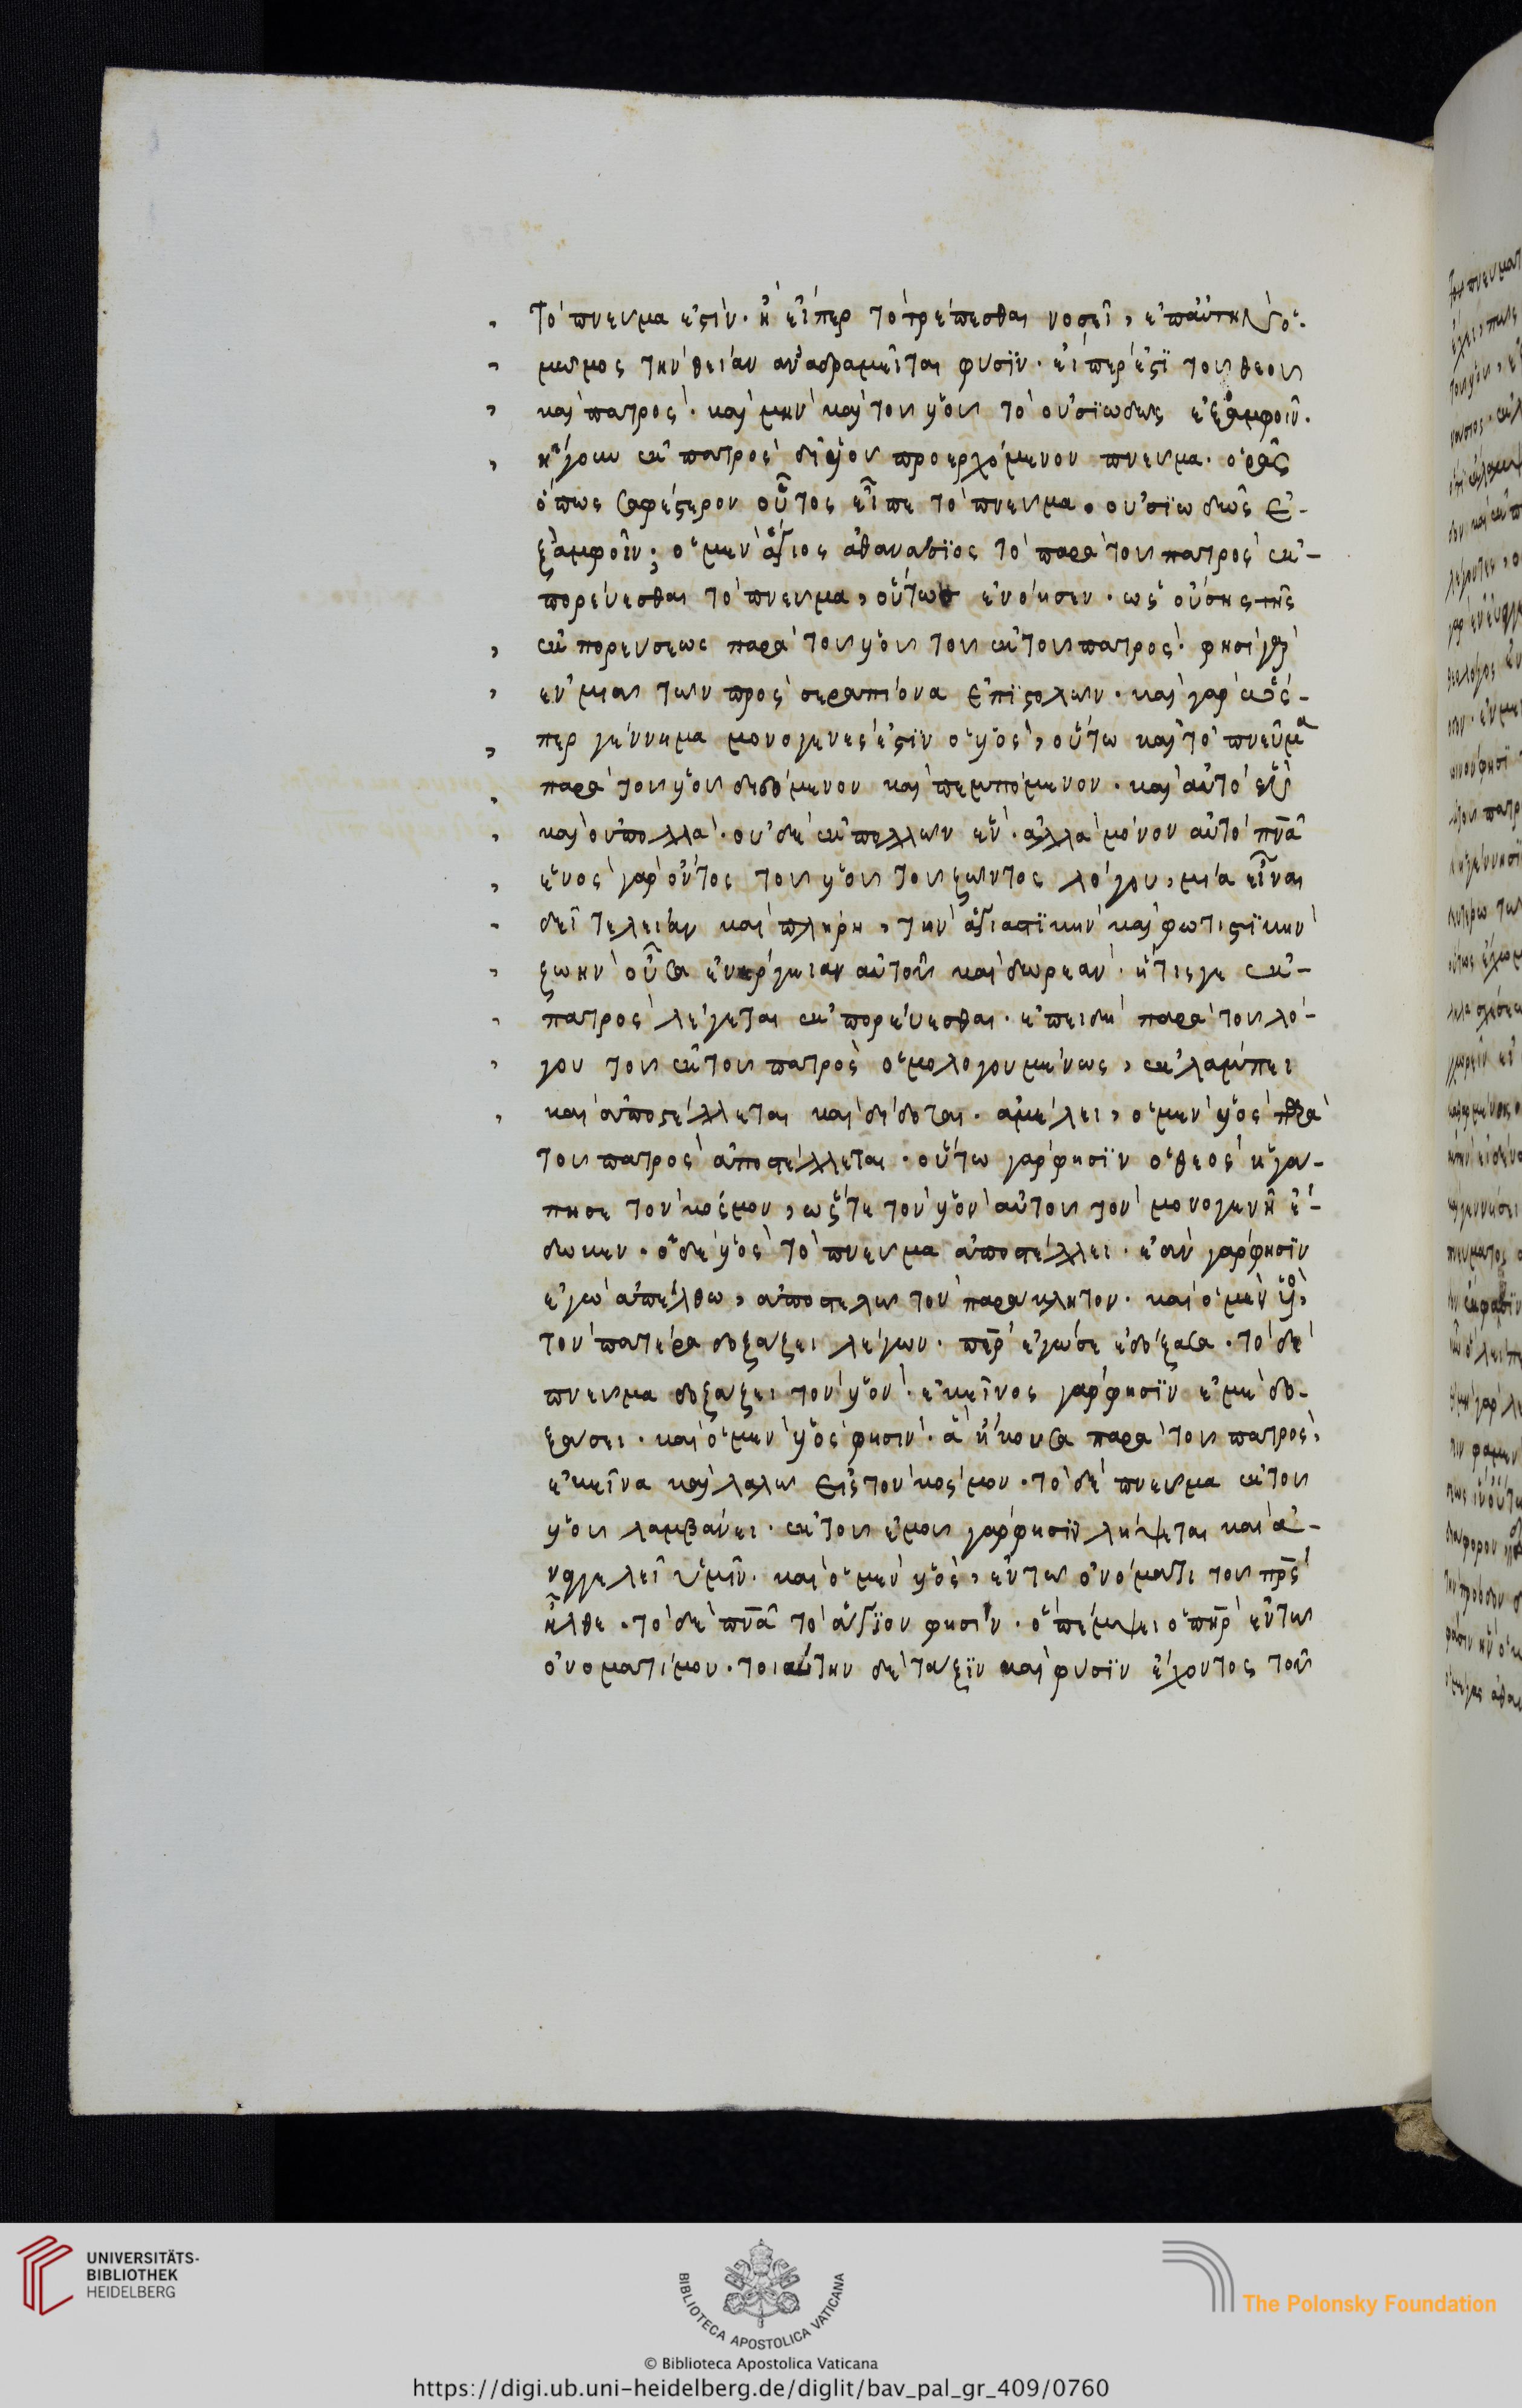 τὸ πνεῦμα ἐστὶν. ἢ εἴπερ τὸ τρέπεσθαι νοσεῖ, ἐπ' αὐτὴν ὁ
μῶμος τὴν θείαν ἀναδραμεῖται φύσϊν. εἴπερ ἐστῒ τοῦ θεοῦ
καὶ πατρὸς. καὶ μὴν καὶ τοῦ ὑοῦ τὸ οὐσϊωδῶς ἐξ ἀμφοῖν.
ἤγουν ἐκ πατρὸς δι' ὑοῦ προερχόμενον πνεῦμα. ὁρᾶς
ὅπως σαφέστερον οὗτος εἶπε τὸ πνεῦμα. οὐσϊωδῶς ἐ-
ξ ἀμφοῖν; ὁ μὲν ἅγιος ἀθανάσϊος τὸ παρὰ τοῦ πατρὸς ἐκ-
πορεύεσθαι τὸ πνεῦμα, οὕτως ἐνόησεν. ὡς οὔσης τῆς
ἐκπορεύσεως παρὰ τοῦ ὑοῦ τοῦ ἐκ τοῦ πατρὸς. φησὶ γὰρ
ἐν μιᾶ τῶν πρὸς σεραπίονα ἐπϊστολῶν. καὶ γὰρ ὥσ-
περ γέννημα μονογενὲς ἐστϊν ὁ ὑὸς, οὕτω καὶ τὸ πνεῦμα
παρὰ τοῦ ὑοῦ διδόμενον καὶ πεμπόμενον. καὶ αὐτὸ ἕν ἐστι
καὶ οὐ πολλὰ. οὐδὲ ἐκ πολλῶν ἓν. ἀλλὰ μόνον αὐτὸ πνᾶ
ἑνὸς γὰρ ὄντος τοῦ ὑοῦ τοῦ ζῶντος λόγου, μία εἶναι
δεῖ τελείαν καὶ πλήρη, τὴν ἁγιαστϊκὴν καὶ φωτιστϊκὴν
ζωὴν οὖσα ἐνέργειαν αὐτοῦ καὶ δωρεὰν. ἥτις γε ἐκ-
πατρὸς λέγεται ἐκπορεύεσθαι. ἐπειδὴ παρὰ τοῦ λό-
γου τοῦ ἐκ τοῦ πατρὸς ὁμολογουμένως, ἐκλάμπει
καὶ ἀποστέλλεται καὶ δίδοται. ἀμέλει, ὁ μὲν ὑὸς παρὰ
τοῦ πατρὸς ἀποστέλλεται. οὕτω γὰρ φησϊν ὁ θεὸς ἠγά-
πησε τὸν κόσμον, ὥστε τὸν ὑὸν αὐτοῦ τὸν μονογενῆ ἔ-
δωκεν. ὁ δὲ ὑὸς τὸ πνεῦμα ἀποστέλλει. ἐὰν γὰρ φησϊν
ἐγὼ ἀπέλθω, ἀποστελῶ τὸν παράκλητον. καὶ ὁ μὲν ὑὸς
τὸν πατέρα δοξάζει λέγων. περ ἐγώ σε ἐδόξασα. τὸ δὲ
πνεῦμα δοξάζει τὸν ὑὸν. ἐκεῖνος γὰρ φησϊν ἐμὲ δο-
ξάσει. καὶ ὁ μὲν ὑὸς φησιν. ἃ ἤκουσα παρὰ τοῦ πατρὸς,
ἐκεῖνα καὶ λαλῶ εἰς τὸν κόσμον. τὸ δὲ πνεῦμα ἐκ τοῦ
ὑοῦ λαμβάνει. ἐκ τοῦ ἐμοῦ γὰρ φησϊν λήψεται καὶ ἀ-
ναγγελεῖ ὑμῖν. καὶ ὁ μὲν ὑὸς, ἐν τῶ ὀνόματι τοῦ πρς
ἦλθε. τὸ δὲ πνᾶ τὸ ἅγϊον φησὶν. ὃ πέμψει ὁ πηρ ἐν τῶ
ὀνόματί μου. τοιαύτην δὲ τάξϊν καὶ φύσϊν ἔχοντος τοῦ
UNIVERSITÄTS-
BIBLIOTHEK
HEIDELBERG
BIBLIOTECA APOSTOLICA VATICANA
The Polonsky Foundation
© Biblioteca Apostolica Vaticana
https://digi.ub.uni-heidelberg.de/diglit/bav_pal_gr_409/0760